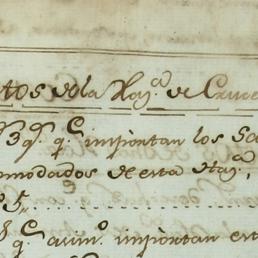 tos de la Haz.ª de Cruce
3 q.s q.e importan los Sa
modados de esta Haz.ª,
5
q.e aum.o importan est